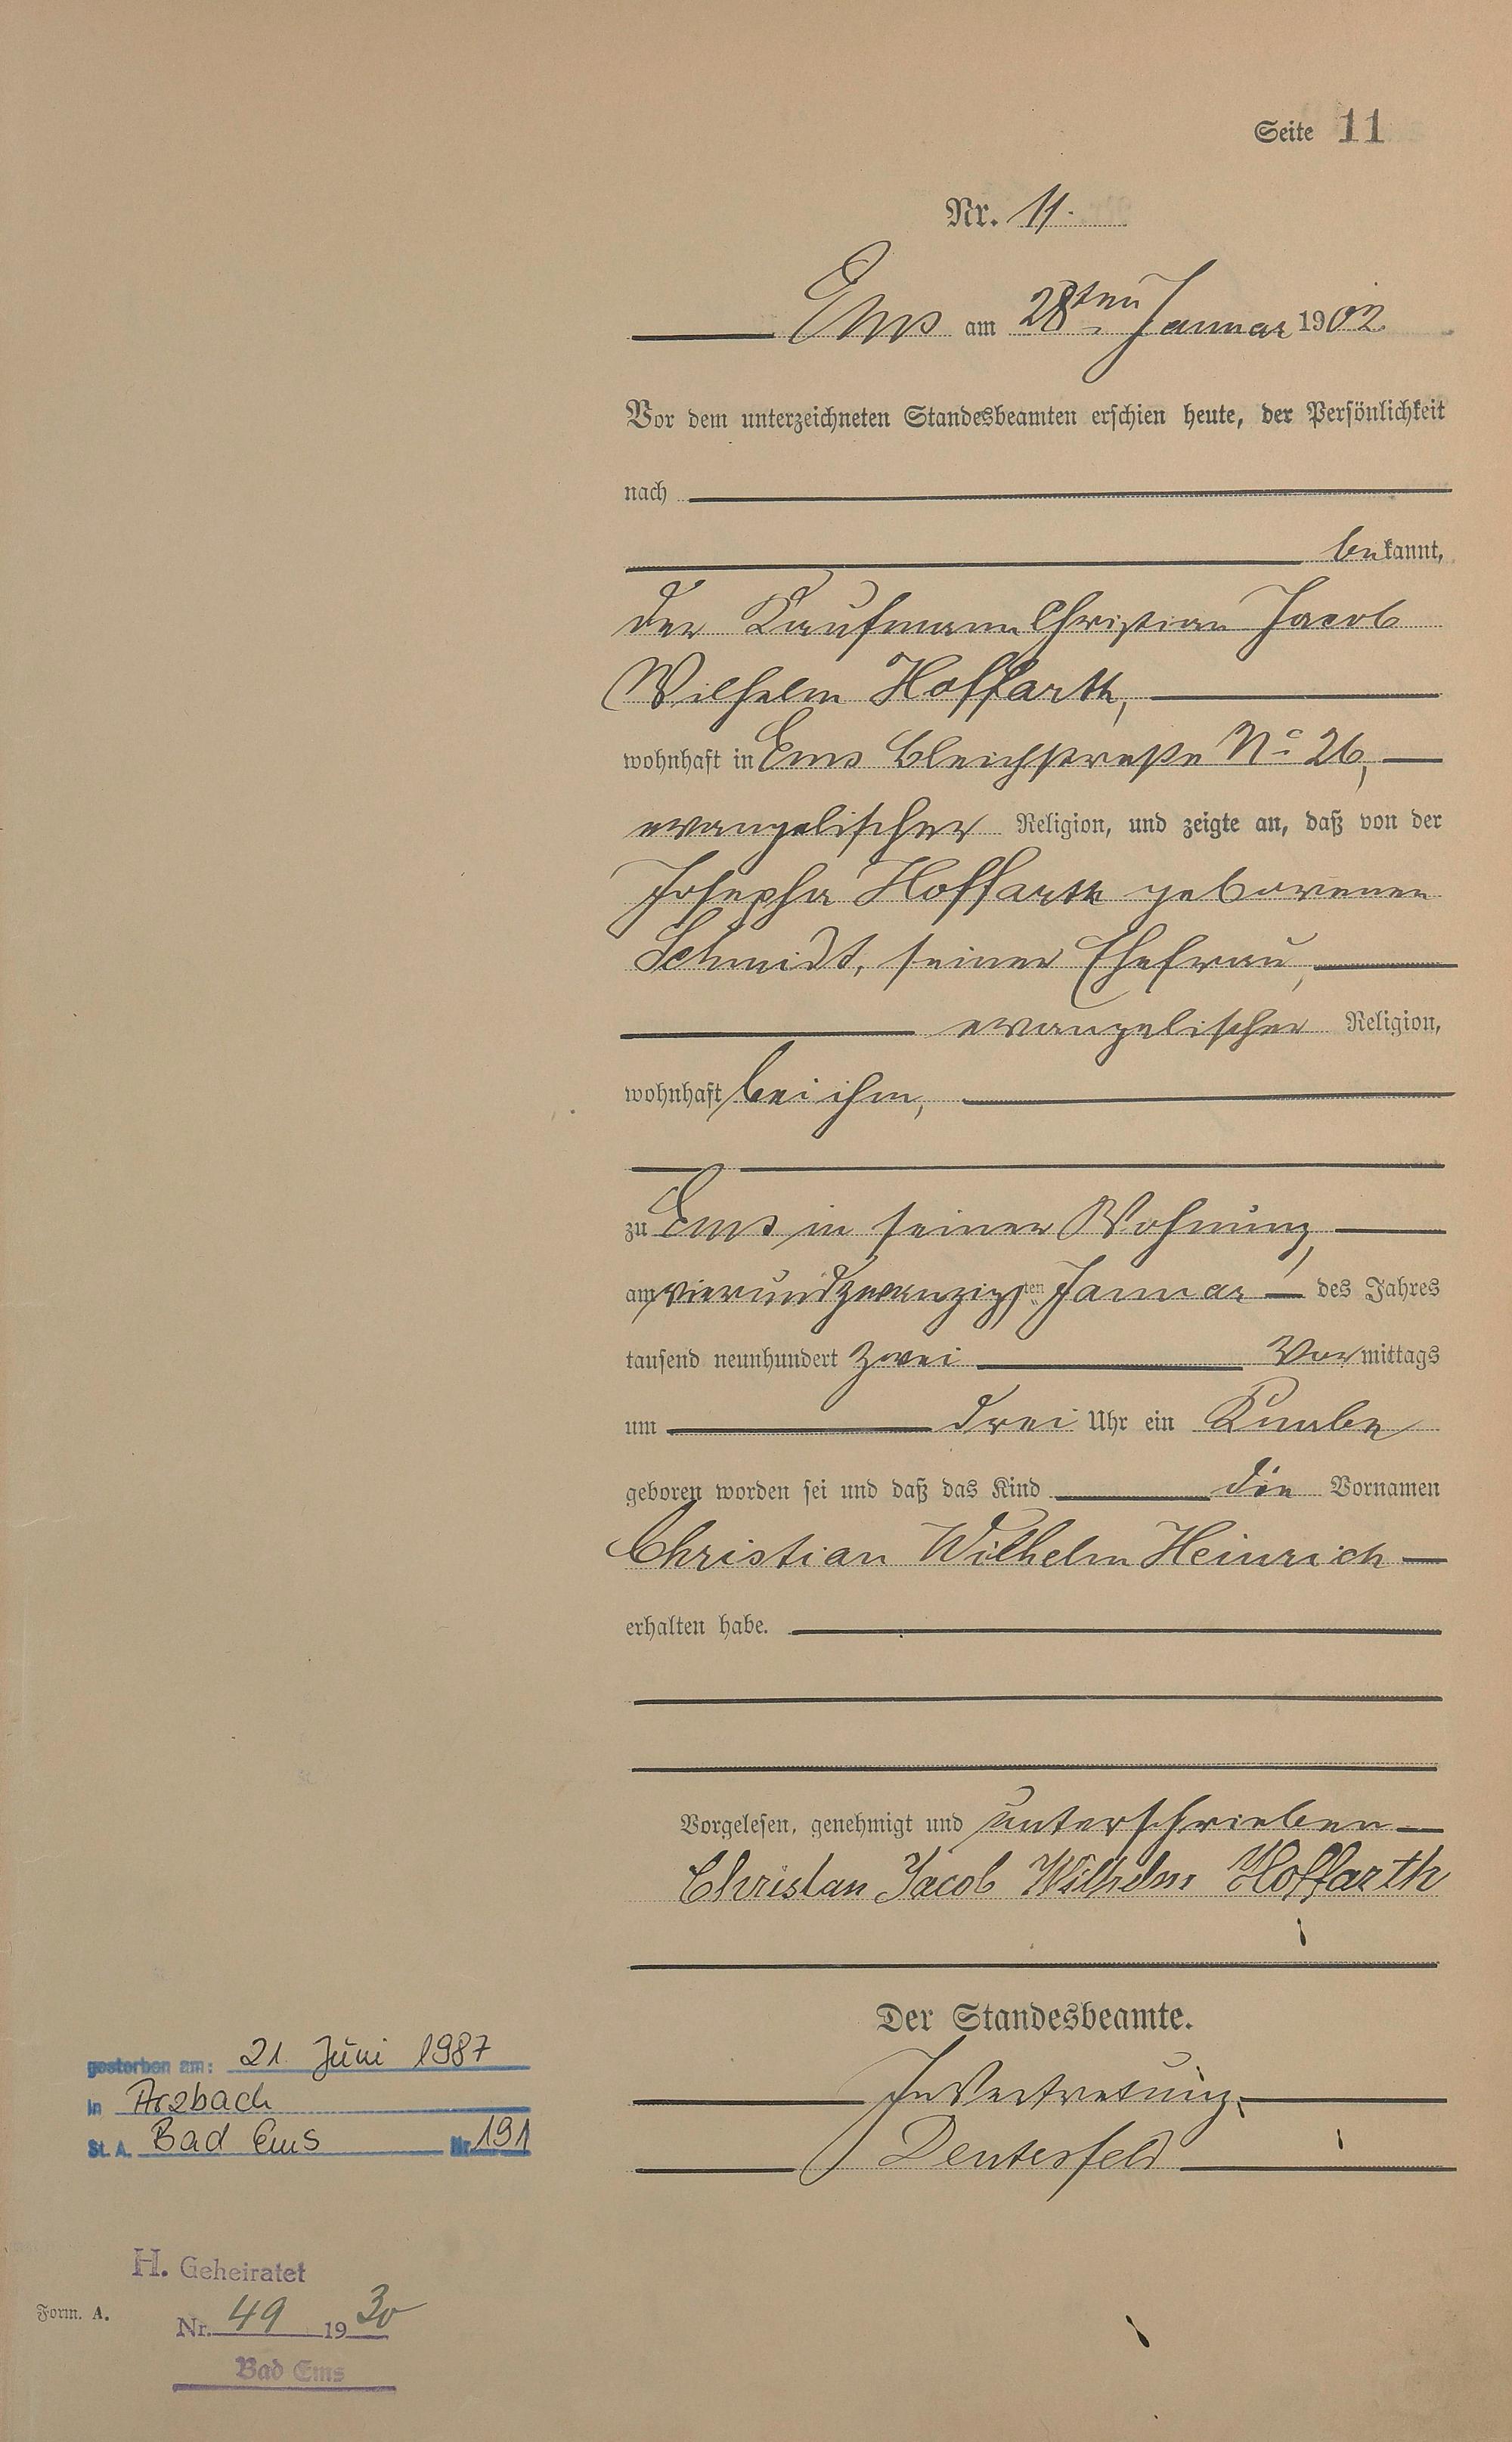 Seite 11
Nr. 11.
Ems am 28ten Januar 1902.
Vor dem unterzeichneten Standesbeamten erschien heute, der Persönlichkeit
nach
bekannt,
der Kaufmann Christian Jacob
Wilhelm Hoffarth,
wohnhaft in Ems Bleichstraße No 26,
evangelischer Religion, und zeigte an, daß von der
Josepha Hoffarth geborenen
Schmidt, seiner Ehefrau,
evangelischer Religion,
wohnhaft bei ihm,
zu Ems in seiner Wohnung,
am vierundzwanzigsten Januar des Jahres
tausend neunhundert zwei Vormittags
um drei Uhr ein Knabe
geboren worden sei und daß das Kind die Vornamen
Christian Wilhelm Heinrich
erhalten habe.
Vorgelesen, genehmigt und unterschrieben
Christan Jacob Wilhelm Hoffarth
Der Standesbeamte.
In Vertretung.
gestorben am: 21. Juni 1987
in Arzbach
St. A. Bad Ems Nr. 191
H. Geheiratet
Nr. 49 1930
Bad Ems
Form. A.